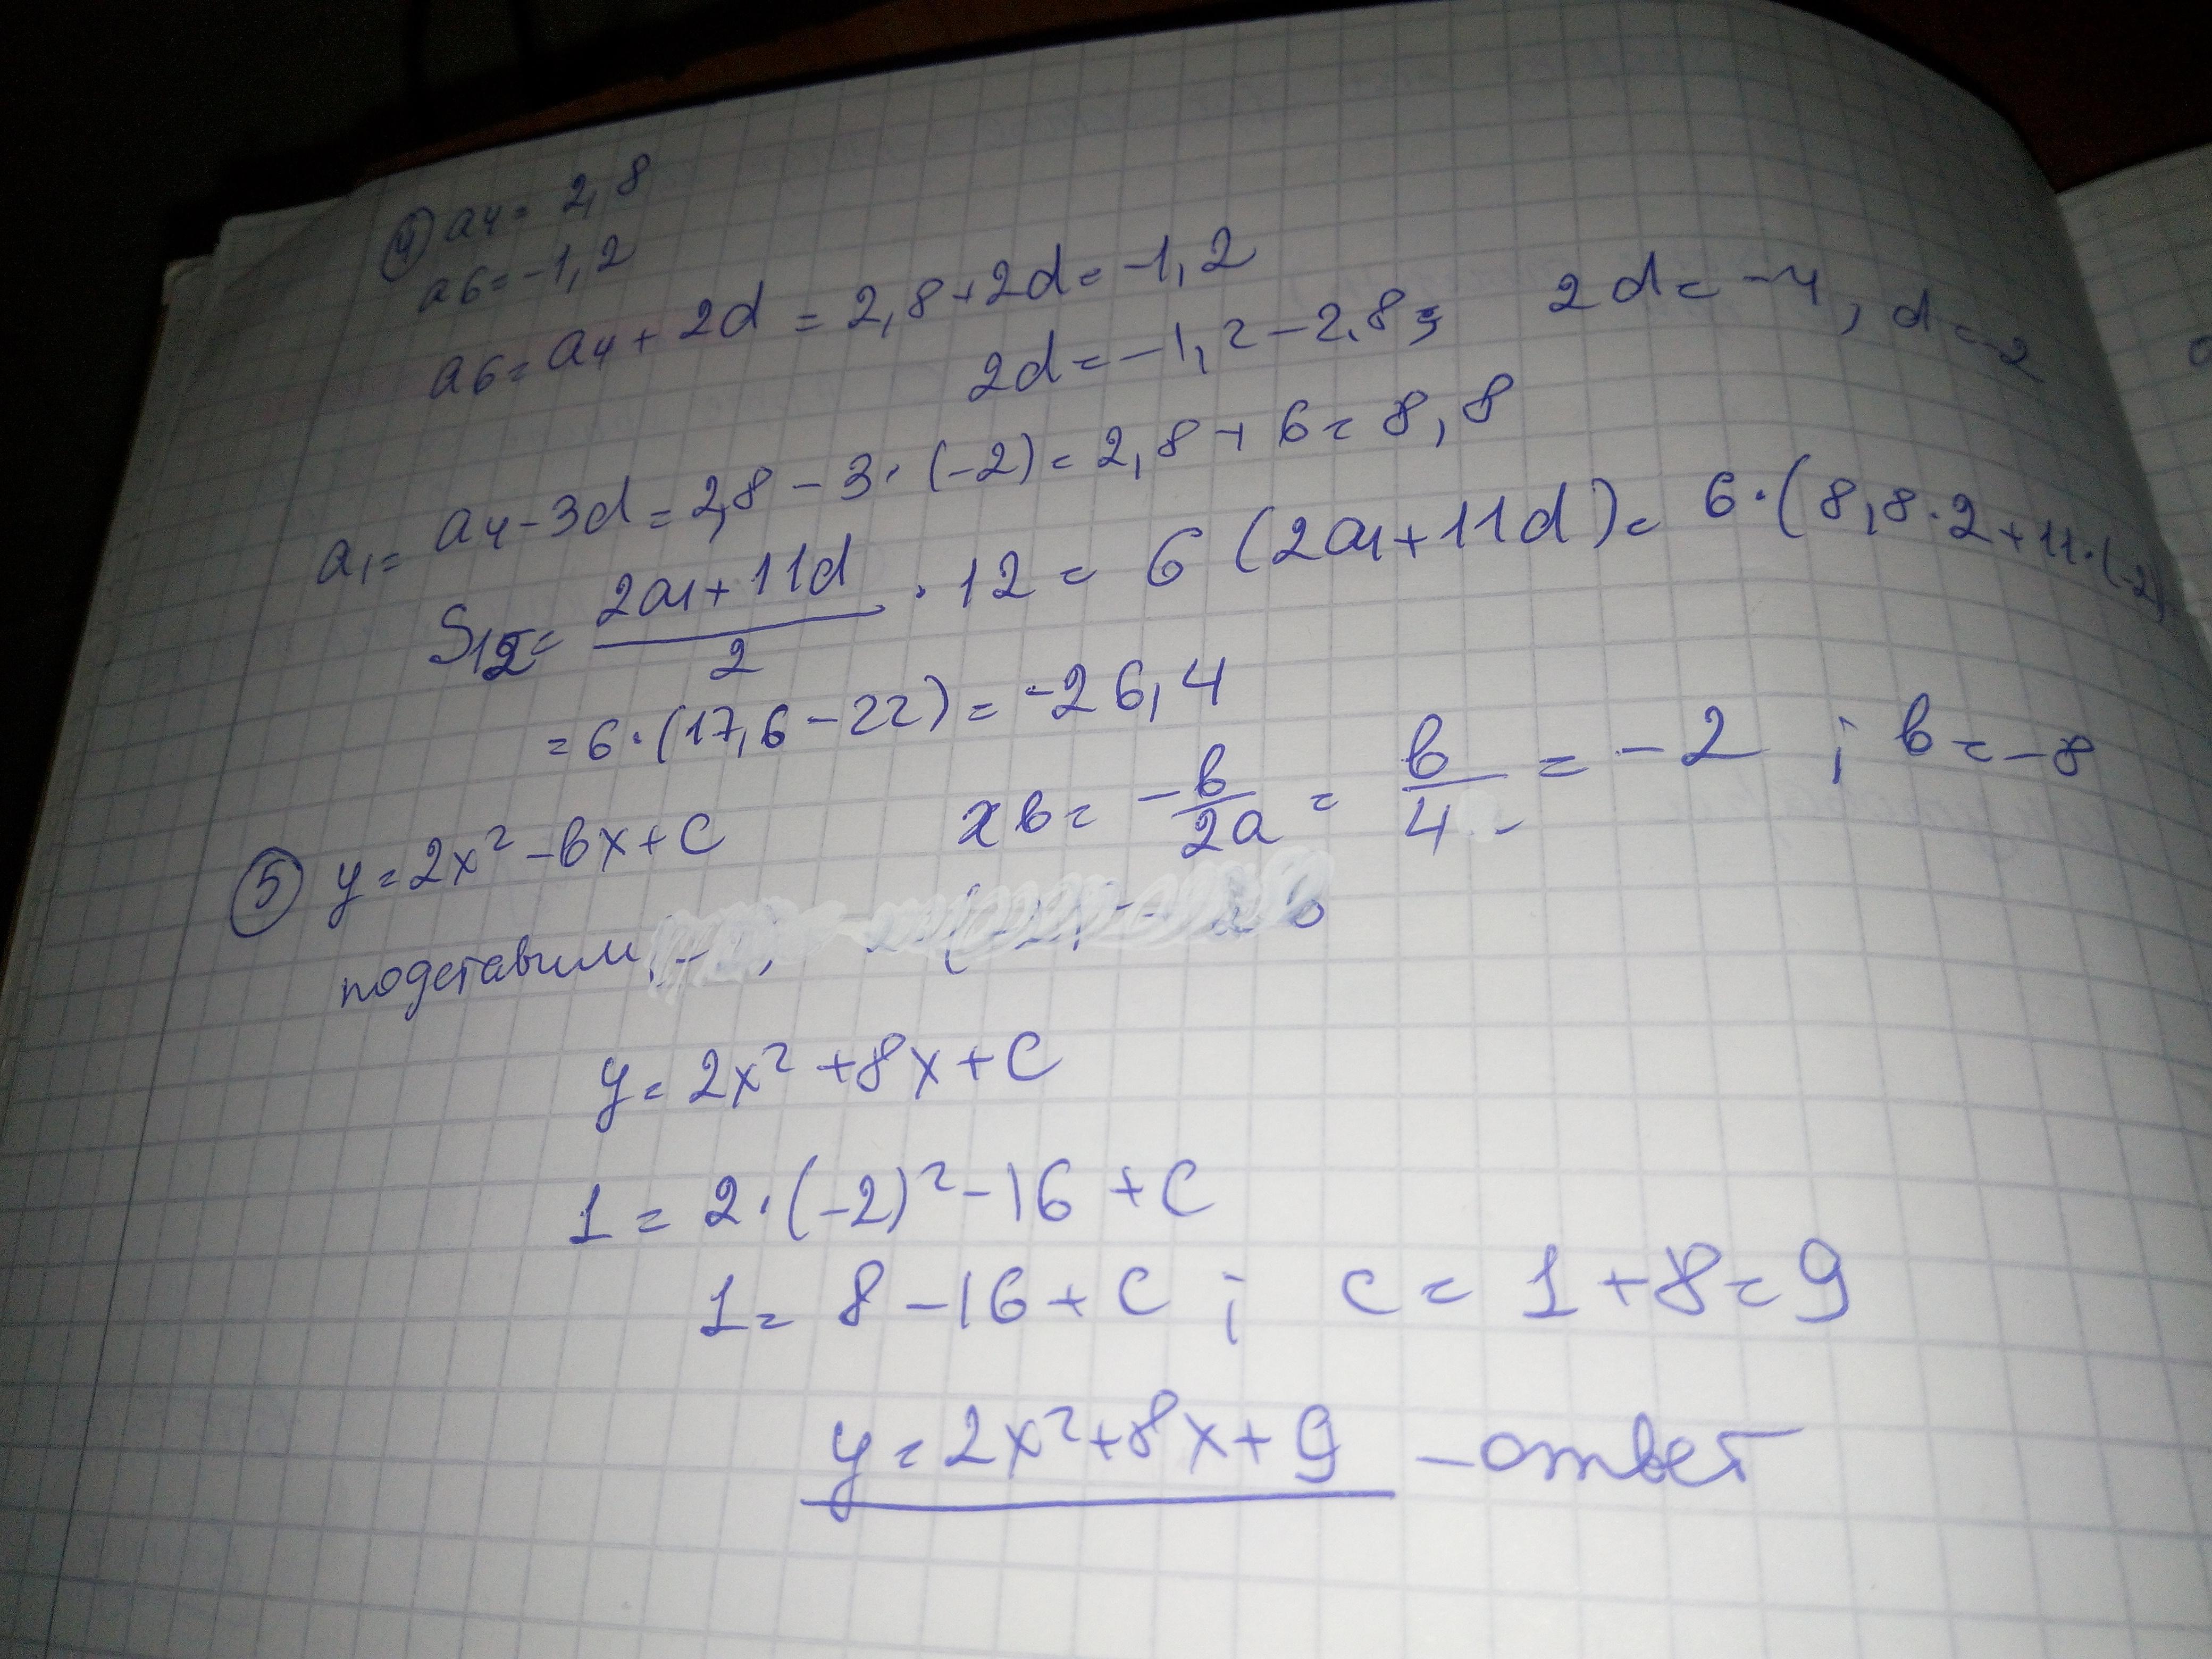 ④ a₄ = 2,8
a₆ = -1,2
a₆ = a₄ + 2d = 2,8 + 2d = -1,2
2d = -1,2 - 2,8; 2d = -4, d = -2
a₁ = a₄ - 3d = 2,8 - 3·(-2) = 2,8 + 6 = 8,8
S₁₂ = (2a₁ + 11d)/2 · 12 = 6(2a₁ + 11d) = 6·(8,8·2 + 11·(-2)
= 6·(17,6 - 22) = -26,4
⑤ y = 2x² - вx + c xв = -в/2a = в/4 = -2 ; в = -8
подставим
y = 2x² + 8x + c
1 = 2·(-2)² - 16 + c
1 = 8 - 16 + c ; c = 1 + 8 = 9
y = 2x² + 8x + 9 - ответ